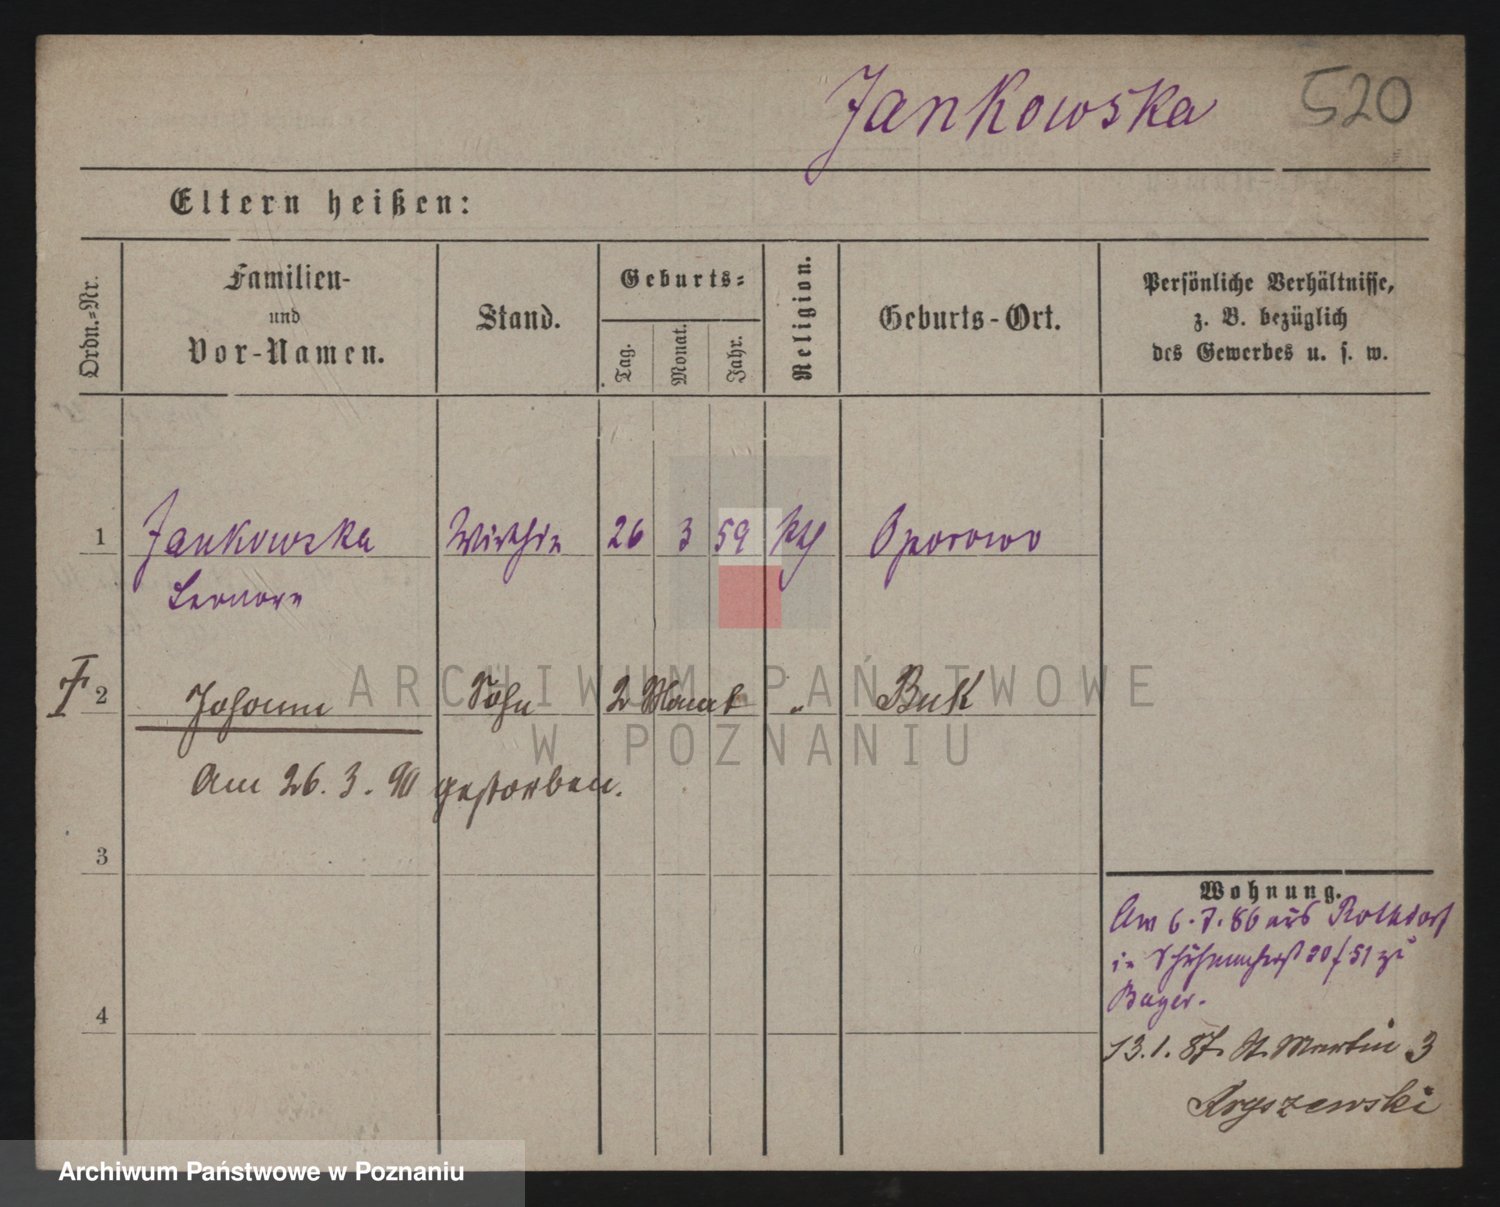 Jankowska 520
Eltern heißen:
Ordn.=Nr.
Familien-
und
Vor-Namen.
Stand.
Geburts=
Tag.
Monat.
Jahr.
Religion.
Geburts-Ort.
Persönliche Verhältnisse,
z. B. bezüglich
des Gewerbes u. s. w.
1 Jankowska Wirthin 26 3 59 kth Oporowo
Leonore
2 Johann Sohn 2 Monat " Buk
Am 26. 3. 90 gestorben.
3
4
Wohnung.
Am 6.7.86 aus Rothdorf
in zu
Bager.
13.1.87. St. Martin 3
ARCHIWUM PAŃSTWOWE
W POZNANIU
Archiwum Państwowe w Poznaniu